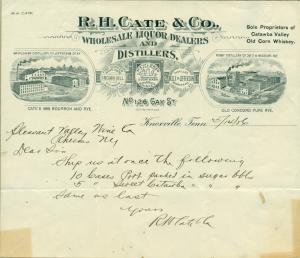 R. H. CATE & CO.,
WHOLESALE LIQUOR DEALERS
AND
DISTILLERS,
Sole Proprietors of
Catawba Valley
Old Corn Whiskey.
No 126 GAY ST.
CATE'S 1885 BOURBON AND RYE.
OLD CONCORD PURE RYE.
Knoxville, Tenn.
Pleasant Valley Wine Co
Rheims NY
Dear Sirs
Ship us at once the following
10 Cases Port packed in sugar bbls
5 " Sweet Catawba " " "
Same as last
Yours
R H Cate & Co